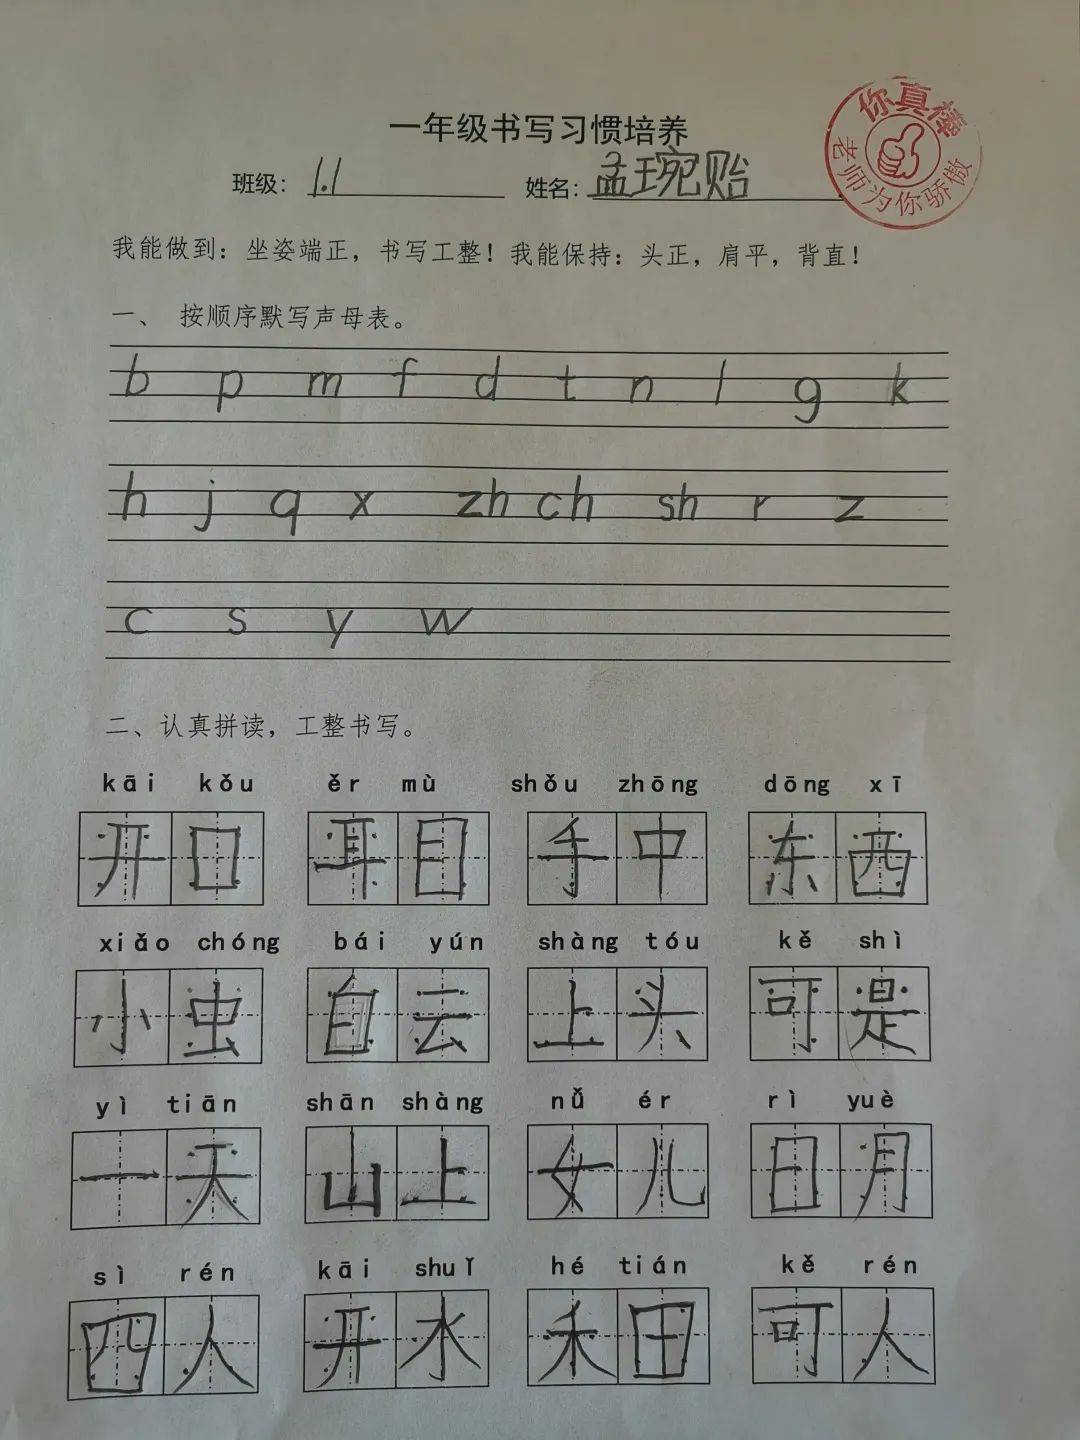 一年级书写习惯培养
你真棒
老师为你骄傲
班级：1.1 姓名：孟琬贻
我能做到：坐姿端正，书写工整！我能保持：头正，肩平，背直！
一、 按顺序默写声母表。
b p m f d t n l g k
h j q x zh ch sh r z
c s y w
二、认真拼读，工整书写。
kāi kǒu ěr mù shǒu zhōng dōng xī
开口 耳目 手中 东西
xiǎo chóng bái yún shàng tóu kě shì
小虫 白云 上头 可是
yì tiān shān shàng nǚ ér rì yuè
一天 山上 女儿 日月
sì rén kāi shuǐ hé tián kě rén
四人 开水 禾田 可人